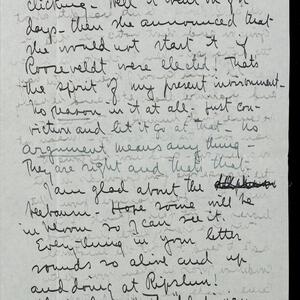 clicking - Well it went on for
days - then she announced that
she would not start it if
Rooseveldt were elected! That's
the spirit of my present invironment -
no reason in it at all - just con-
viction and let it go at that - no
argument means any thing -
They are right and thats that -
I am glad about the
Hope some will be
in bloom so I can see it.
Everything in your letter
sounds so alive and up
and doing at Ripslun!